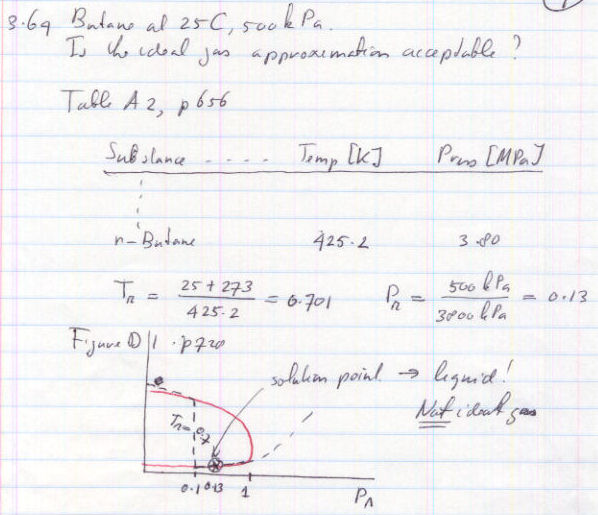 3.69 Butane at 25C, 500 kPa.
Is the ideal gas approximation acceptable?
Table A 2, p 656
Substance .... Temp [K] Press [MPa]
n-Butane 425.2 3.80
Tr = (25 + 273)/425.2 = 0.701 Pr = 500 kPa/3800 kPa = 0.13
Figure D 1 . p720
solution point → liquid!
Not ideal gas
Tr = 0.7
0.1 0.13 1 Pr